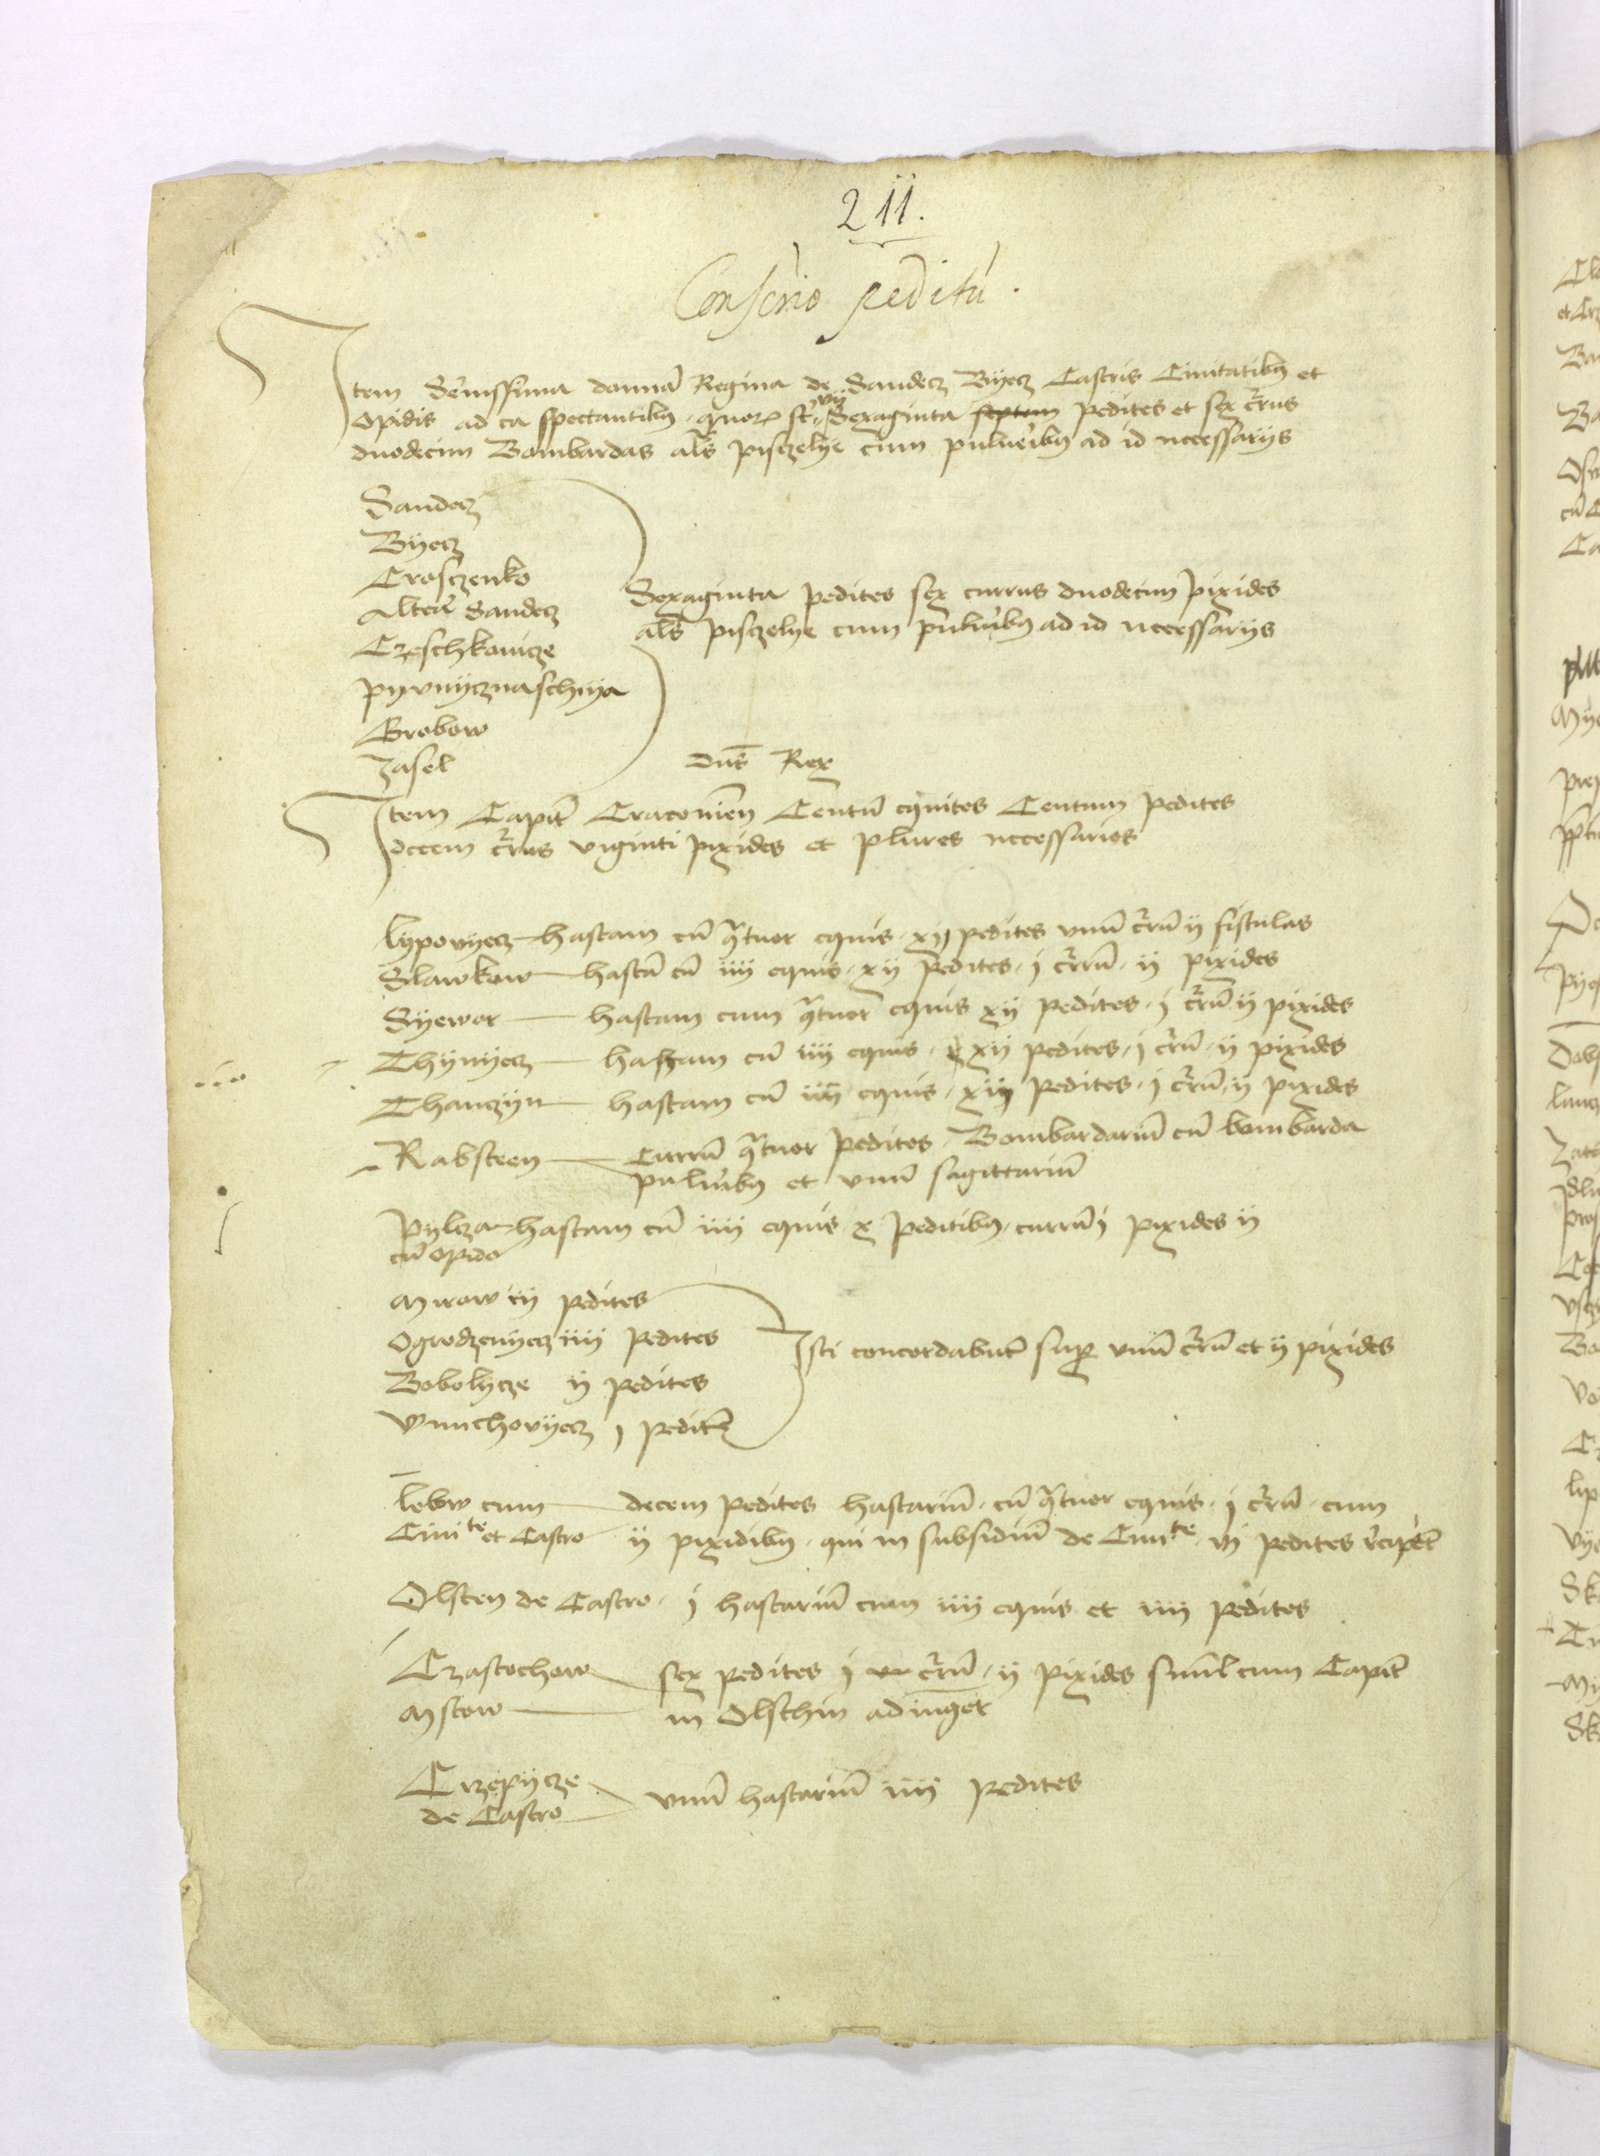 211.
Conscrio peditu.
Item Serenissima domina Regina de Sandecz Byecz Castris Civitatibus et
Opidis ad ea spectantibus quorum st vii Sexaginta septem pedites et sex crrus
duodecim Bombardas als pisczelye cum pulveribus ad id necessariis
Sandecz
Byecz
Croschenko
Altera Sandecz
Czeschkovicze
Pyvnycznaschya
Grobow
Jasel
Sexaginta pedites sex currus duodecim pixides
als pisczelye cum pulveribus ad id necessariis
Dns Rex
Item Capit Cracovien Centu equites Centum pedites
decem crrus viginti pixides et plures necessarios
Lypovyecz hastam cu quatuor equis xij pedites unu crru ij fistulas
Slawkow hasta cu iiij equis xij pedites i crru ij pixides
Syewor hastam cum quatuor equis xij pedites i crru ij pixides
Thynyecz hastam cu iiij equis xij pedites i crru ij pixides
Thanczyn hastam cu iiij equis xij pedites i crru ij pixides
Rabsteen Curru quatuor pedites Bombardariu cu bombarda
pulveribus et unu sagittariu
Pylcza hastam cu iiij equis x peditibus curru i pixides ij
cu opido
Mirow iij pedites
Ogrodzenyecz iiij pedites
Bobolycze ij pedites
i pedite
Isti concordabunt super unu crru et ij pixides
Lelow cum decem pedites hastariu cu quatuor equis i crru cum
Civite et Castro ij pixidibus qui in subsidiu de Civite vi pedites recipiet
Olsten de Castro i hastariu cum iiij equis et iiij pedites
Czastochow sex pedites i crru ij pixides simul cum Capit
Mstow in Olschin adiunget
Crzepycze unu hastariu iiij pedites
de Castro